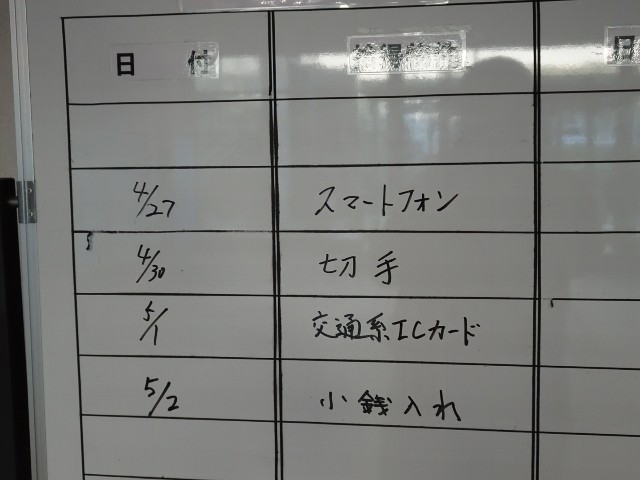 日 付
4/27 スマートフォン
4/30 切手
5/1 交通系ICカード
5/2 小銭入れ